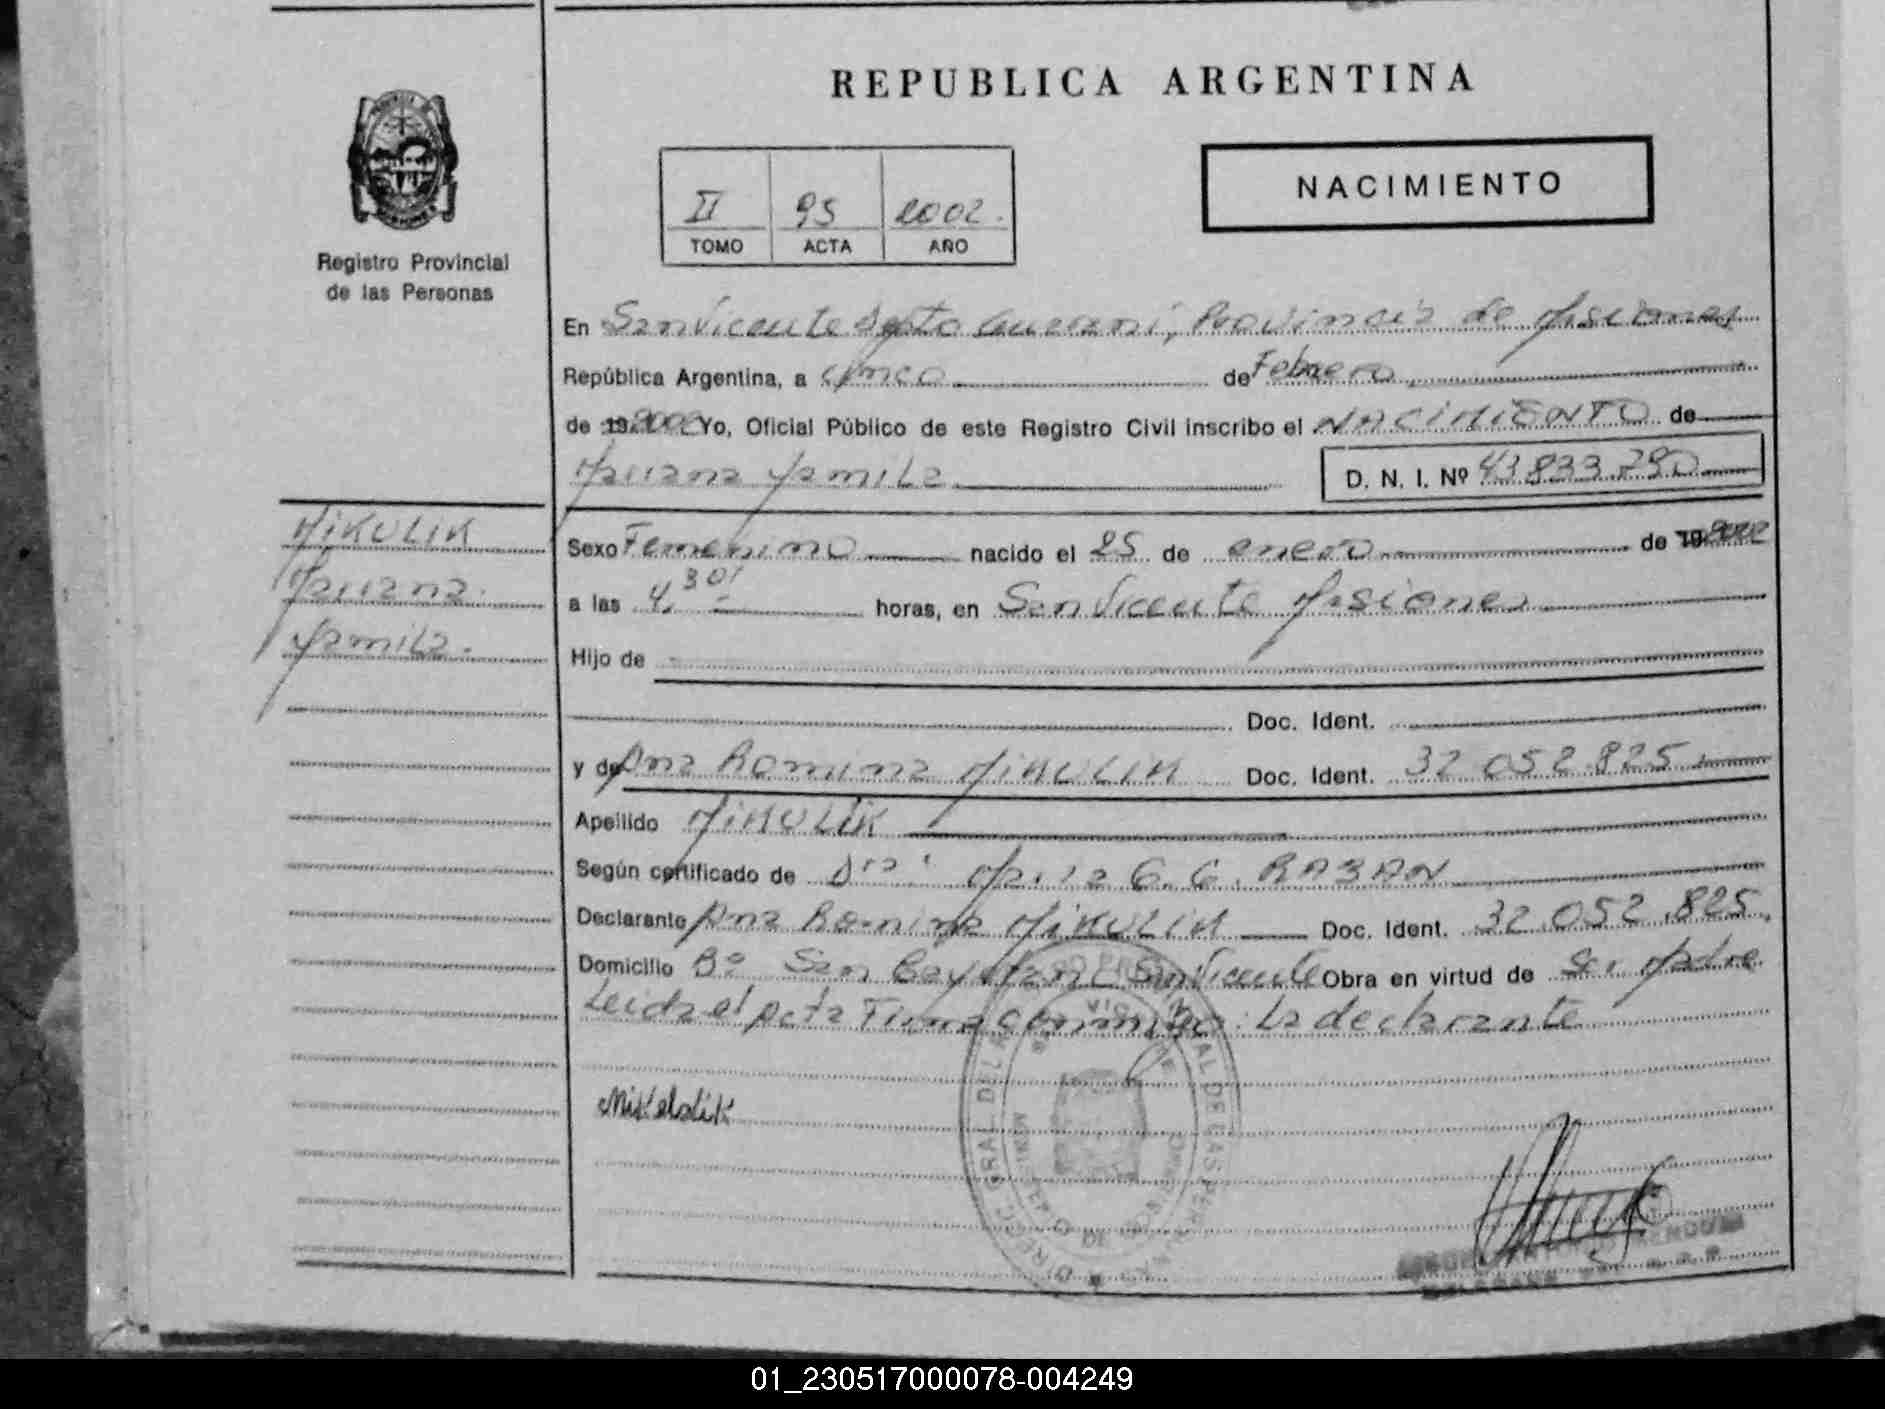 REPUBLICA ARGENTINA
Registro Provincial
de las Personas
II 95 2002.
TOMO ACTA AÑO
NACIMIENTO
En San Vicente Dpto Guarani, Provincia de Misiones
República Argentina, a cinco de Febrero
de 19 2002 Yo, Oficial Público de este Registro Civil inscribo el NACIMIENTO de
Mariana Yamila
D. N. I. Nº 43.833.790
MIKULIK
Mariana
Yamila.
Sexo Femenino nacido el 25 de enero de 19 2002
a las 4,30 horas, en San Vicente Misiones
Hijo de
Doc. Ident.
y de Ana Romina MIKULIK Doc. Ident. 32 052.825
Apellido MIKULIK
Según certificado de Dra: Maria G. G.
Declarante Ana Romina MIKULIK Doc. Ident. 32.052.825.
Domicilio Bº San Cayetano San Vicente Obra en virtud de Ser Madre
Leida el Acta Firma conmigo: La declarante
01_230517000078-004249